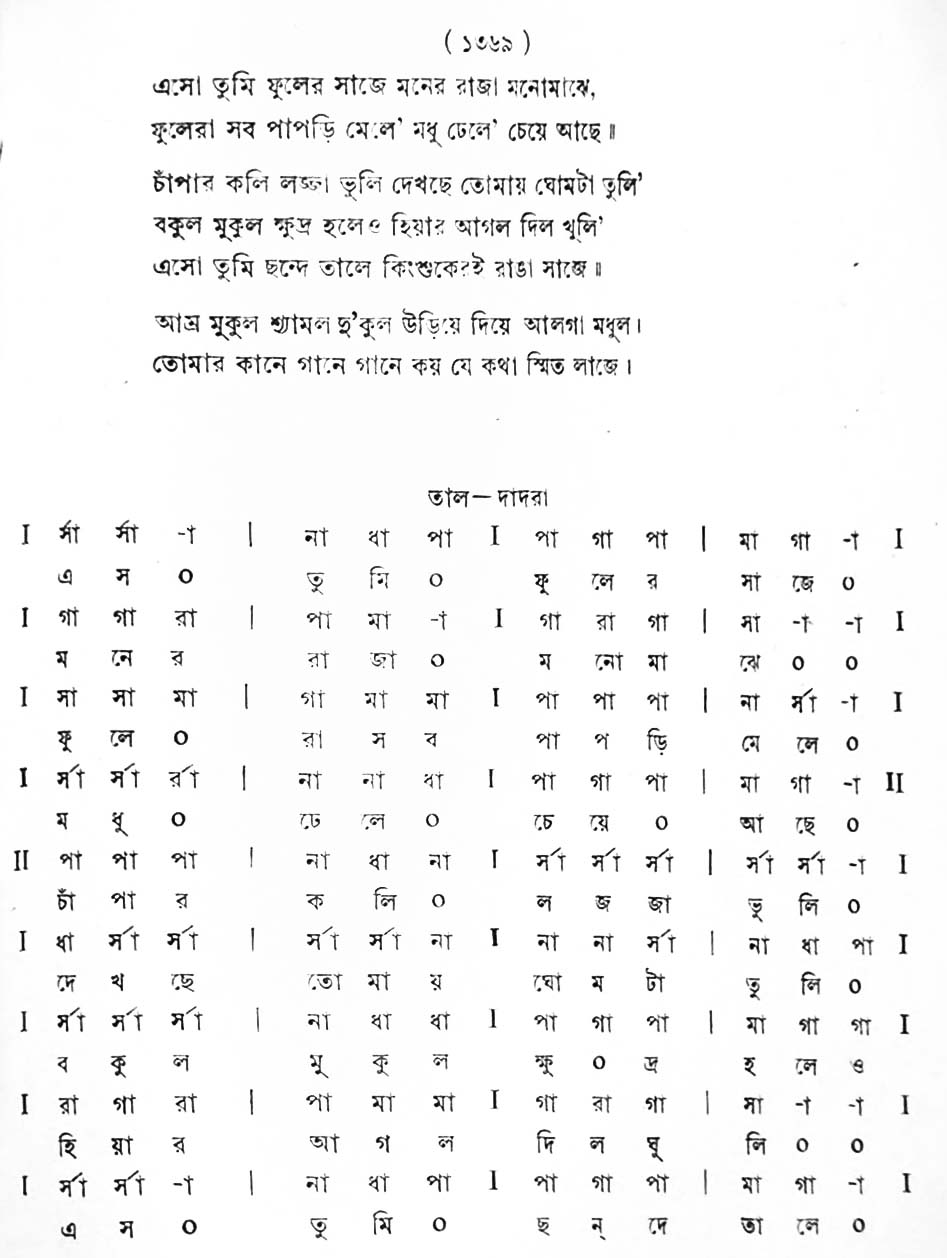 ( ১৩৬৯ )
এসো তুমি ফুলের সাজে মনের রাজা মনোমাঝে,
ফুলেরা সব পাপড়ি মেলে' মধু ঢেলে' চেয়ে আছে॥
চাঁপার কলি লজ্জা ভুলি দেখছে তোমায় ঘোমটা তুলি'
বকুল মুকুল ক্ষুদ্র হলেও হিয়ার আগল দিল খুলি'
এসো তুমি ছন্দে তালে কিংশুকেরই রাঙা সাজে॥
আম্র মুকুল শ্যামল দু'কুল উড়িয়ে দিয়ে আলগা মধুল।
তোমার কানে গানে গানে কয় যে কথা স্মিত লাজে।
তাল—দাদরা
I র্সা র্সা -া | না ধা পা I পা গা পা | মা গা -া I
এ স ০ তু মি ০ ফু লে র সা জে ০
I গা গা রা | পা মা -া I গা রা গা | সা -া -া I
ম নে র রা জা ০ ম নো মা ঝে ০ ০
I সা সা মা | গা মা মা I পা পা পা | না র্সা -া I
ফু লে ০ রা স ব পা প ড়ি মে লে ০
I র্সা র্সা র্রা | না না ধা I পা গা পা | মা গা -া II
ম ধু ০ ঢে লে ০ চে য়ে ০ আ ছে ০
II পা পা পা | না ধা না I র্সা র্সা র্সা | র্সা র্সা -া I
চাঁ পা র ক লি ০ ল জ জা ভু লি ০
I ধা র্সা র্সা | র্সা র্সা না I না না র্সা | না ধা পা I
দে খ ছে তো মা য় ঘো ম টা তু লি ০
I র্সা র্সা র্সা | না ধা ধা I পা গা পা | মা গা গা I
ব কু ল মু কু ল ক্ষু ০ দ্র হ লে ও
I রা গা রা | পা মা মা I গা রা গা | সা -া -া I
হি য়া র আ গ ল দি ল ঘু লি ০ ০
I র্সা র্সা -া | না ধা পা I পা গা পা | মা গা -া I
এ স ০ তু মি ০ ছ ন্ দে তা লে ০